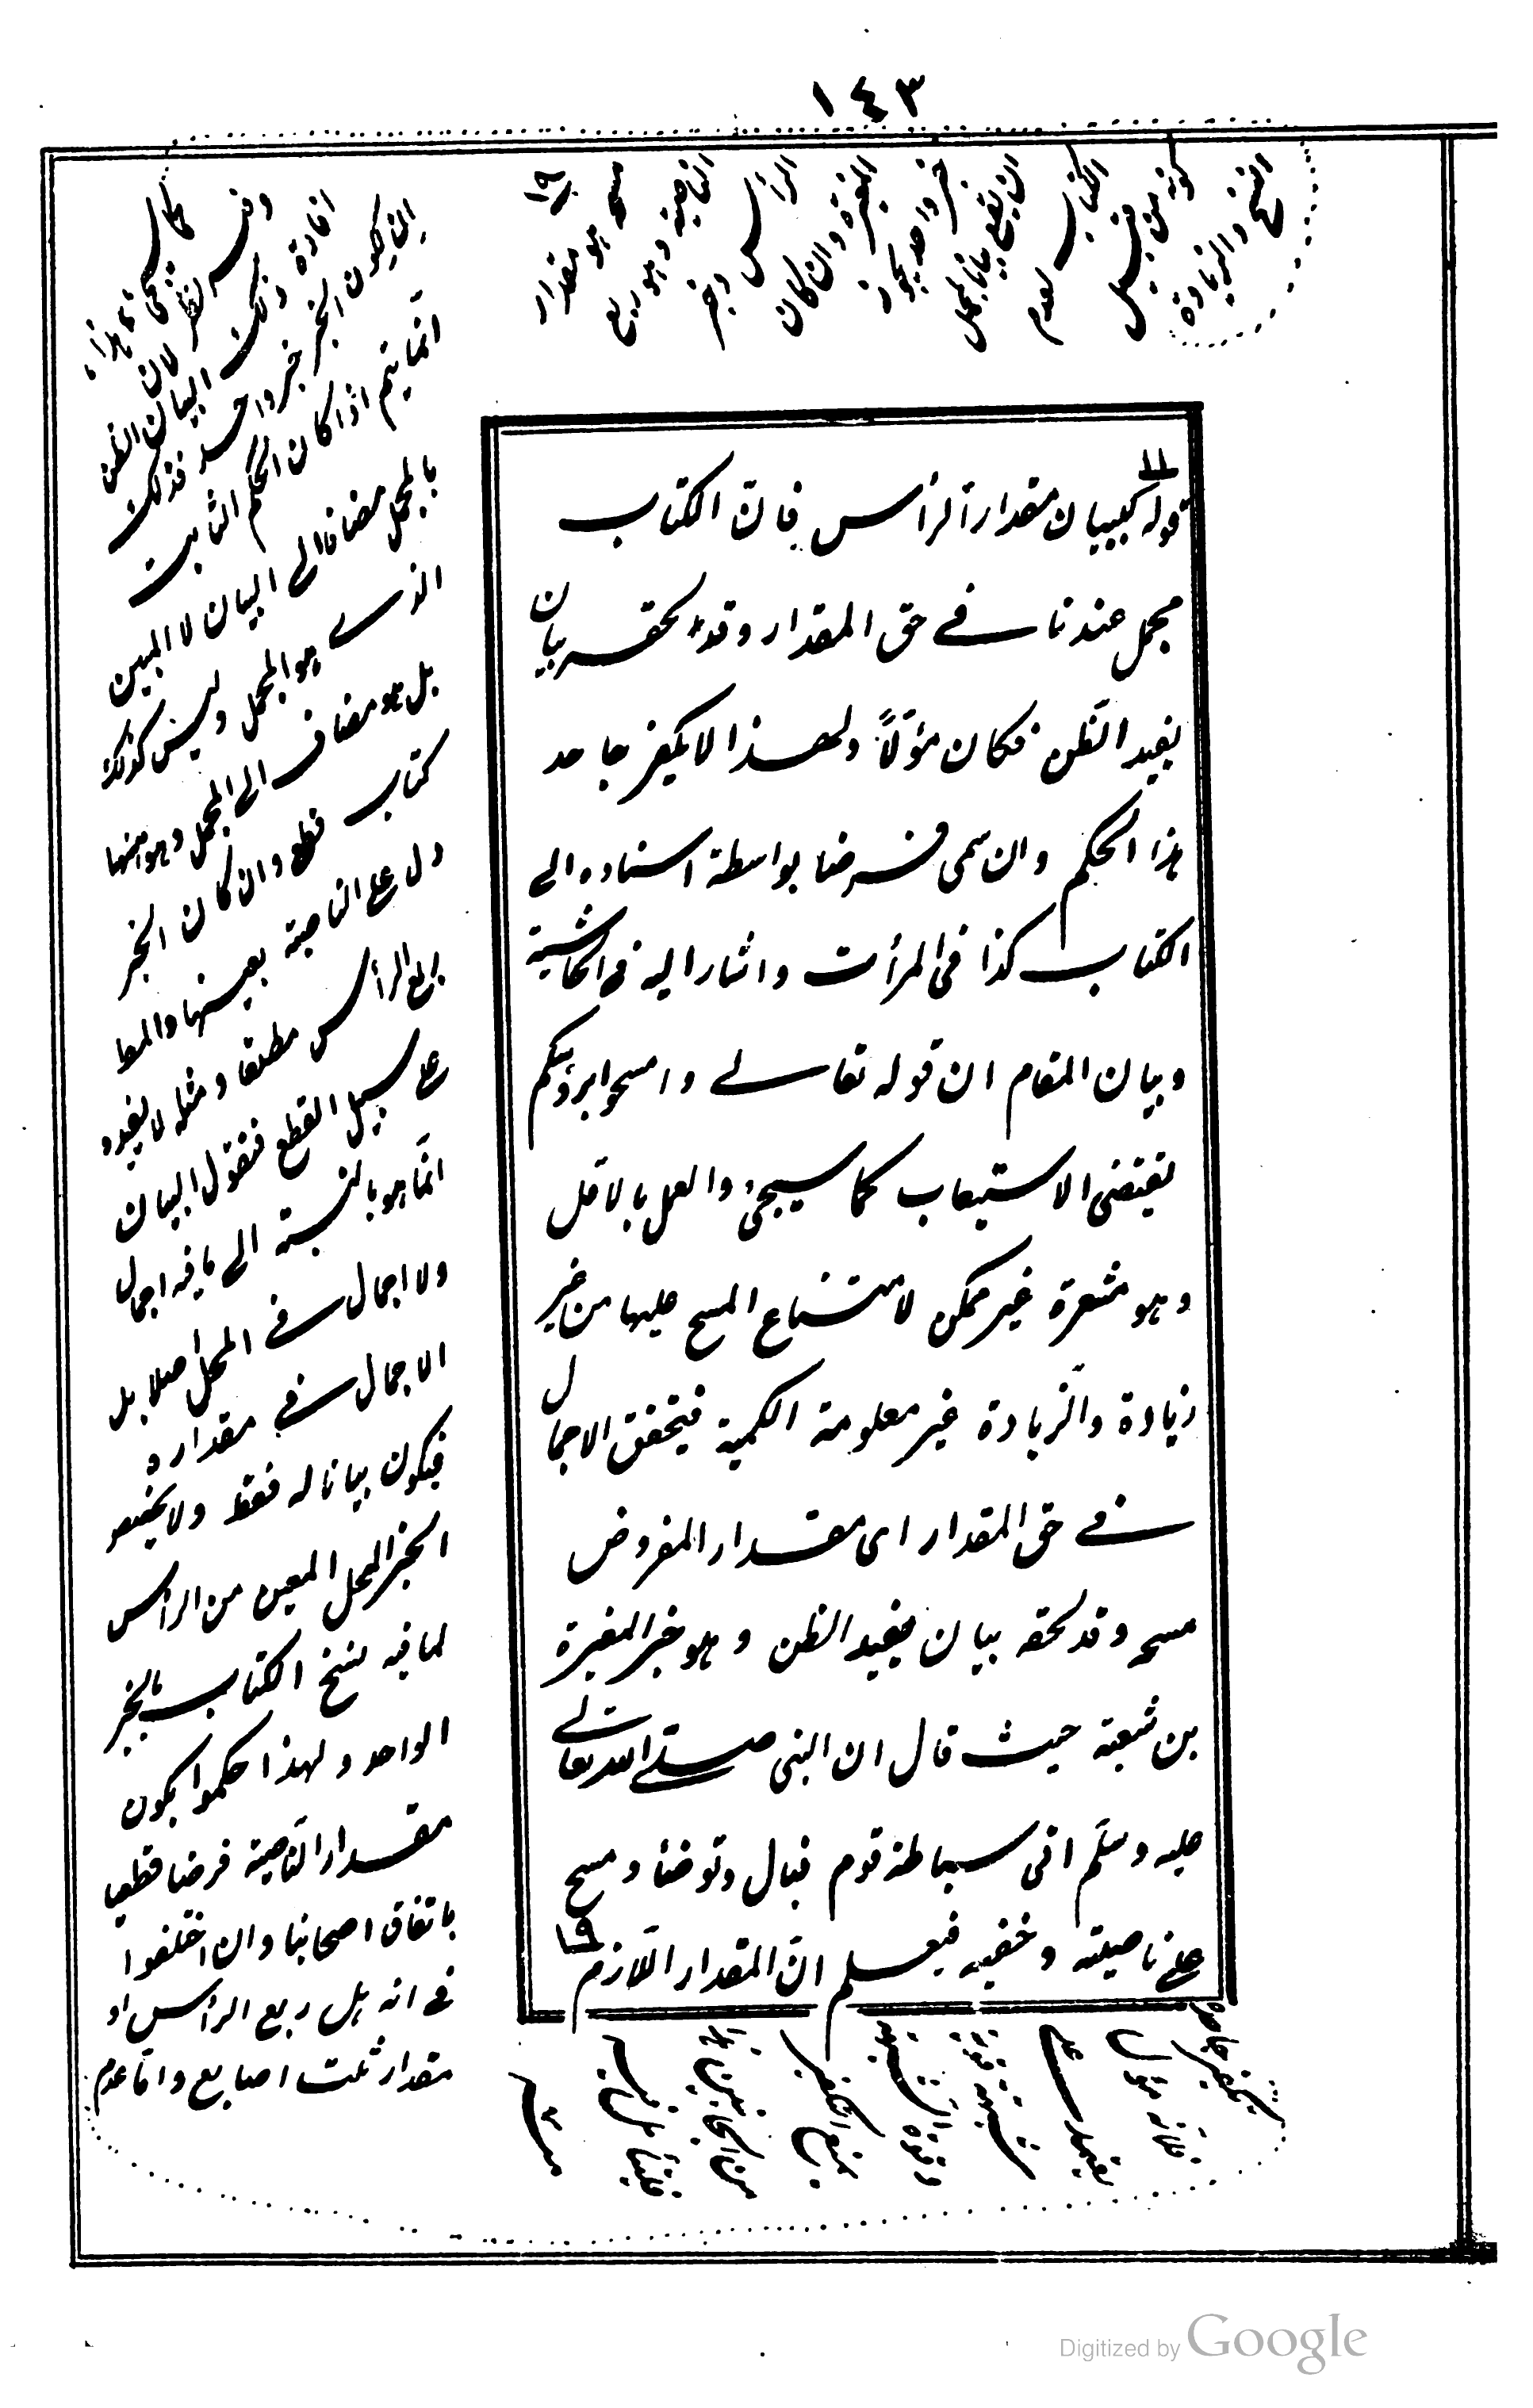 ١٤٣
قوله كبيان مقدار الرأس فان الكتاب
مجمل عندنا في حق المقدار وقد لحقه بيان
يفيد الظن فكان مؤلاً ولهذا لا يكفر جاحد
هذا الحكم وان سمى فرضا بواسطة اسناده الى
الكتاب كذا فى المرأت واشار اليه فى الحاشية
وبيان المقام ان قوله تعالى وامسحوا برؤسكم
يقتضى الاستيعاب كما سيجئ والعمل بالاقل
وهو شعرة غير ممكن لامتناع المسح عليها من غير
زيادة والزيادة غير معلومة الكمية فيتحقق الاجمال
في حق المقدار اى مقدار المفروض
مسحه وقد لحقه بيان يفيد الظن وهو خبر المغيرة
بن شعبة حيث قال ان النبى صلى الله تعالى
عليه وسلم اتى سباطة قوم فبال وتوضأ ومسح
على ناصيته وخفيه فيعلم ان المقدار اللازم
١٩
مسحه هو مقدار
الناصية وهو ربع
الرأس وخبر
المغيرة وان كان
خبر واحد يجوز
ان يقع بيانا لمجمل
الكتاب لعدم
كونه من قبيل
النسخ والزيادة
كما سيجئ
وفيه نظر لان
افادة البيان الظن
ان يكون الخبر خبر واحد فذلك
انما يتم اذا كان الحكم الثابت
بالمجمل مضافا الى البيان لا المبين
الذى هو المجمل وليس كذلك
بل هو مضاف الى المجمل وهو ههنا
كتاب قطعى وان كان الخبر
دل على الناصية بعينها والمدعا
ربع الرأس مطلقا ومثله لا يفيده
على سبيل القطع فنقول البيان
انما هو بالنسبة الى ما فيه اجمال
ولا اجمال في المحل اصلا بل
الاجمال في مقداره
فيكون بيانا له فقط ولا يخصص
الخبر المحل المعين من الرأس
لما فيه نسخ الكتاب بالخبر
الواحد ولهذا حكموا بكون
مقدار الناصية فرضا قطعيا
باتفاق اصحابنا وان اختلفوا
فى انه هل ربع الرأس او
مقدار ثلث اصابع واما عدم
تكفير جاحده